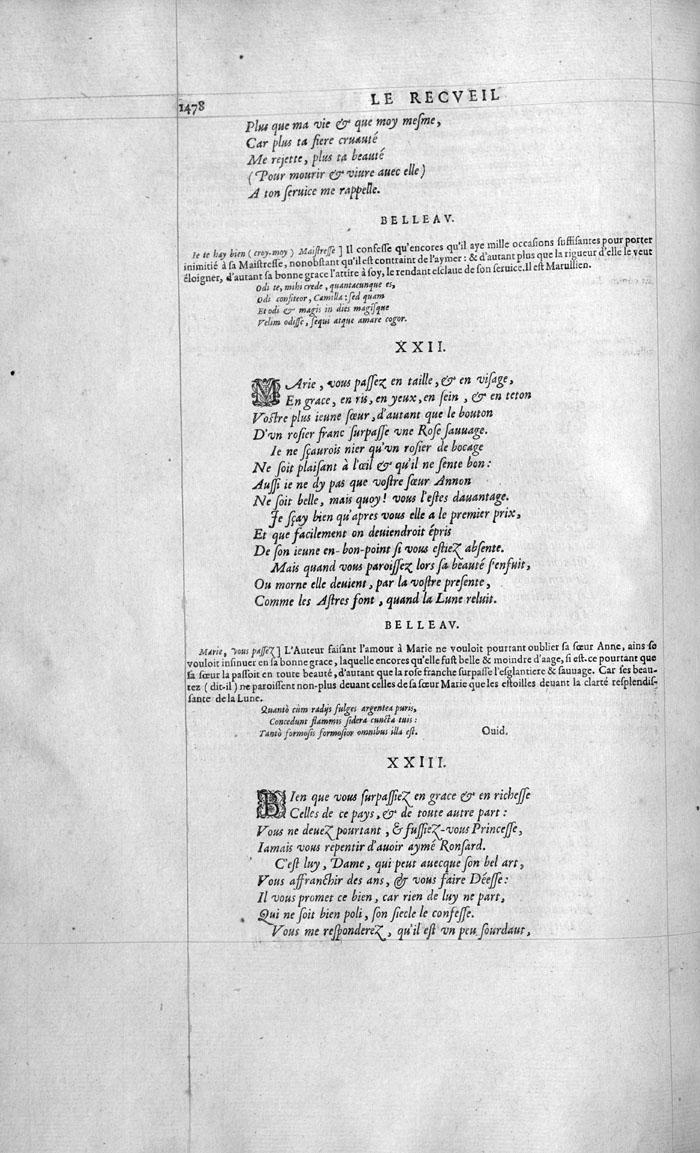 1478 LE RECVEIL
Plus que ma vie & que moy meſme,
Car plus ta fiere cruauté
Me rejette, plus ta beauté
(Pour mourir & viure auec elle)
A ton ſeruice me rappelle.
BELLEAV.
Ie te hay bien (croy-moy) Maiſtreſſe] Il confeſſe qu'encores qu'il aye mille occaſions ſuffiſantes pour porter
inimitié à ſa Maiſtreſſe, nonobſtant qu'il eſt contraint de l'aymer: & d'autant plus que la rigueur d'elle le veut
éloigner, d'autant ſa bonne grace l'attire à ſoy, le rendant eſclaue de ſon ſeruice. Il eſt Marullien.
Odi te, mihi crede, quantacunque es,
Odi confiteor, Camilla: ſed quam
Et odi & magis in dies magiſque
Velim odiſſe, ſequi atque amare cogor.
XXII.
MArie, vous paſſez en taille, & en viſage,
En grace, en ris, en yeux, en ſein, & en teton
Voſtre plus ieune ſœur, d'autant que le bouton
D'vn roſier franc ſurpaſſe vne Roſe ſauuage.
Ie ne ſçaurois nier qu'vn roſier de bocage
Ne ſoit plaiſant à l'œil & qu'il ne ſente bon:
Auſſi ie ne dy pas que voſtre ſœur Annon
Ne ſoit belle, mais quoy! vous l'eſtes dauantage.
Je ſçay bien qu'apres vous elle a le premier prix,
Et que facilement on deuiendroit épris
De ſon ieune en-bon-point ſi vous eſtiez abſente.
Mais quand vous paroiſſez lors ſa beauté s'enfuit,
Ou morne elle deuient, par la voſtre preſente,
Comme les Aſtres font, quand la Lune reluit.
BELLEAV.
Marie, vous paſſez] L'Auteur faiſant l'amour à Marie ne vouloit pourtant oublier ſa ſœur Anne, ains ſe
vouloit inſinuer en ſa bonne grace, laquelle encores qu'elle fuſt belle & moindre d'aage, ſi eſt-ce pourtant que
ſa ſœur la paſſoit en toute beauté, d'autant que la roſe franche ſurpaſſe l'eſglantiere & ſauuage. Car ſes beau-
tez (dit-il) ne paroiſſent non-plus deuant celles de ſa ſœur Marie que les eſtoilles deuant la clarté reſplendiſ-
ſante de la Lune.
Quantò cùm radijs fulges argentea puris,
Concedunt flammis ſidera cuncta tuis:
Tantò formoſis formoſior omnibus illa eſt. Ouid.
XXIII.
BIen que vous ſurpaſſiez en grace & en richeſſe
Celles de ce pays, & de toute autre part:
Vous ne deuez pourtant, & fuſſiez-vous Princeſſe,
Iamais vous repentir d'auoir aymé Ronſard.
C'eſt luy, Dame, qui peut auecque ſon bel art,
Vous affranchir des ans, & vous faire Déeſſe:
Il vous promet ce bien, car rien de luy ne part,
Qui ne ſoit bien poli, ſon ſiecle le confeſſe.
Vous me reſponderez, qu'il eſt vn peu ſourdaut,